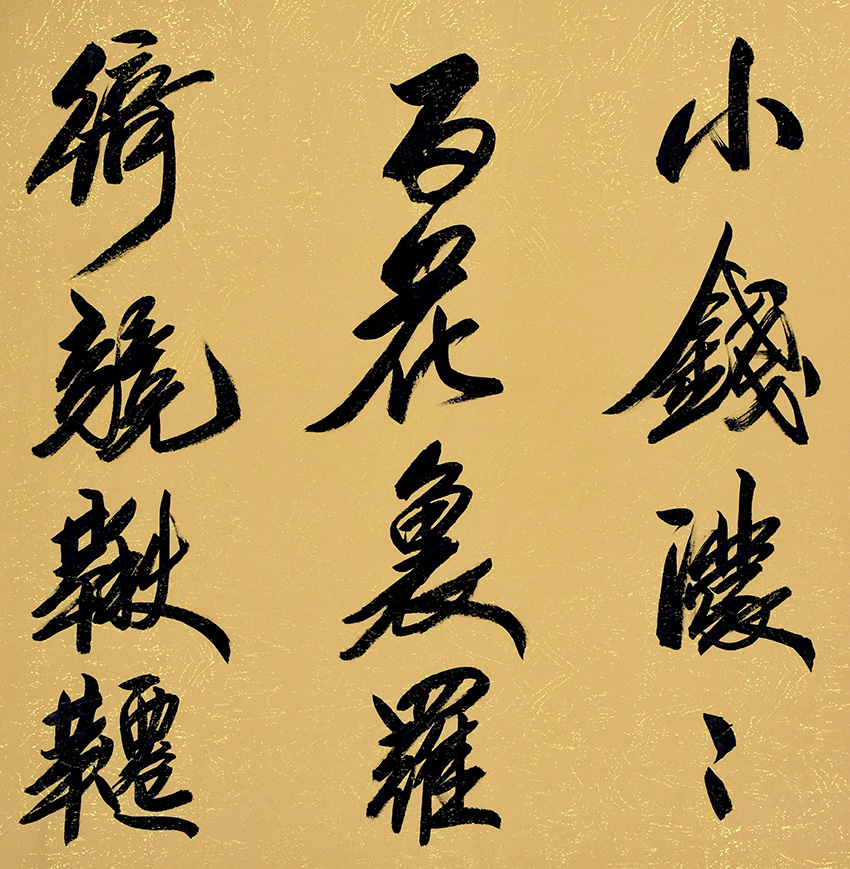 小錢濃〻
百花裏羅
綺競鞦韆